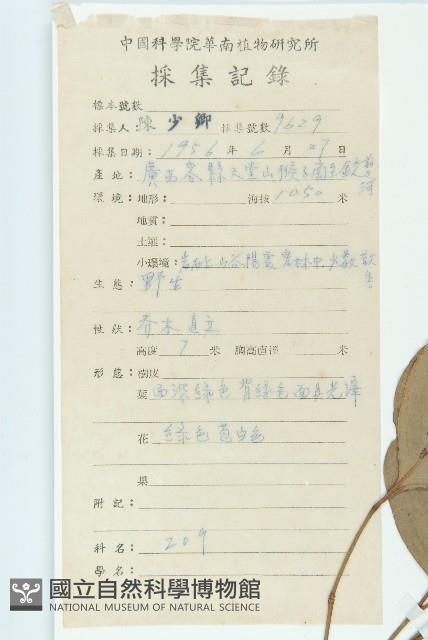 中國科學院華南植物研究所
採集記錄
標本號數
採集人 陳少卿 採集號數 9629
採集日期：1956年6月27日
產地：廣西容縣天堂山
環境：地形： 海拔 1050 米
地質：
土壤：
小環境：山谷陽處密林中少數
生態：野生
性狀：乔木直立
高度 7 米 胸高直徑 米
形態：樹皮
葉 面深綠色背綠色面具光澤
花 綠色苞白色
果
附記：
科名： 209
學名：
國立自然科學博物館
NATIONAL MUSEUM OF NATURAL SCIENCE